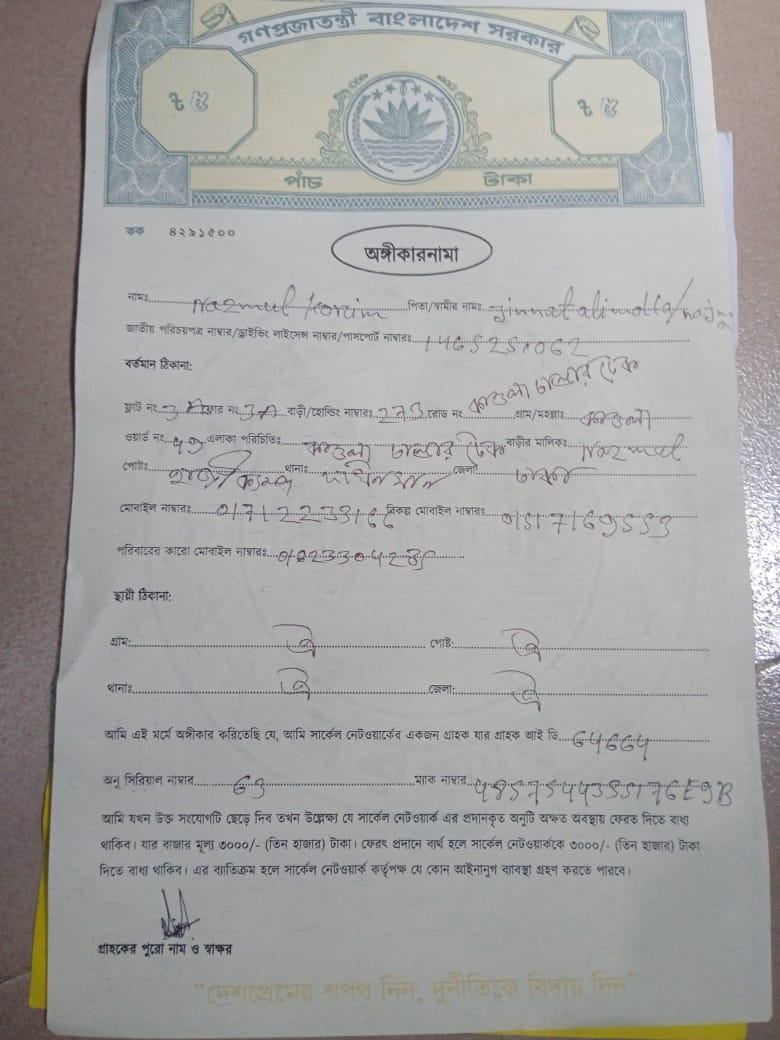 গণপ্রজাতন্ত্রী বাংলাদেশ সরকার
৳ ৫ ৳ ৫
পাঁচ টাকা
কক ৪২৯১৫০০
অঙ্গীকারনামা
নামঃ Nazmul korim পিতা/স্বামীর নামঃ jinnat ali molla/
জাতীয় পরিচয়পত্র নাম্বার/ড্রাইভিং লাইসেন্স নাম্বার/পাসপোর্ট নাম্বারঃ
বর্তমান ঠিকানা:
ফ্লাট নং 3A ফ্লোর নং 3A বাড়ী/হোল্ডিং নাম্বারঃ 273 রোড নং কাওলা গ্রাম/মহল্লাঃ কাওলা
ওয়ার্ড নং এলাকা পরিচিতিঃ কাওলা বাড়ীর মালিকঃ Nazmul
পোষ্টঃ থানাঃ দক্ষিনখান জেলাঃ ঢাকা
মোবাইল নাম্বারঃ বিকল্প মোবাইল নাম্বারঃ
পরিবারের কারো মোবাইল নাম্বারঃ
স্থায়ী ঠিকানা:
গ্রাম: ঐ পোষ্ট: ঐ
থানাঃ ঐ জেলা: ঐ
আমি এই মর্মে অঙ্গীকার করিতেছি যে, আমি সার্কেল নেটওয়ার্কের একজন গ্রাহক যার গ্রাহক আই ডি 64664
অনু সিরিয়াল নাম্বার 63 ম্যাক নাম্বার
আমি যখন উক্ত সংযোগটি ছেড়ে দিব তখন উল্লেক্ষ্য যে সার্কেল নেটওয়ার্ক এর প্রদানকৃত অনুটি অক্ষত অবস্থায় ফেরত দিতে বাধ্য
থাকিব। যার বাজার মূল্য ৩০০০/- (তিন হাজার) টাকা। ফেরৎ প্রদানে ব্যর্থ হলে সার্কেল নেটওয়ার্ককে ৩০০০/- (তিন হাজার) টাকা
দিতে বাধ্য থাকিব। এর ব্যতিক্রম হলে সার্কেল নেটওয়ার্ক কর্তৃপক্ষ যে কোন আইনানুগ ব্যবস্থা গ্রহণ করতে পারবে।
গ্রাহকের পুরো নাম ও স্বাক্ষর
"দেশপ্রেমের শপথ নিন, দুর্নীতিকে বিদায় দিন"